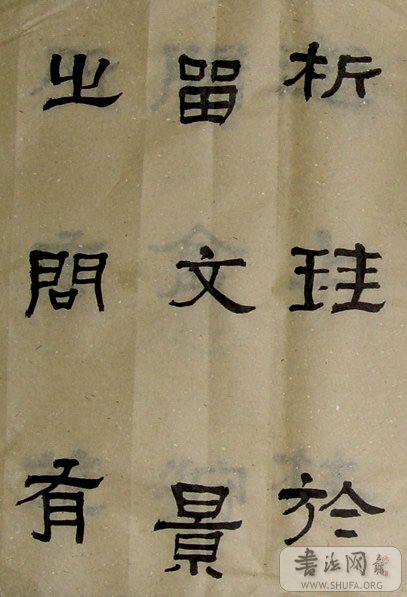 析珪於
留文景
之間有
書法网
WWW.SHUFA.ORG